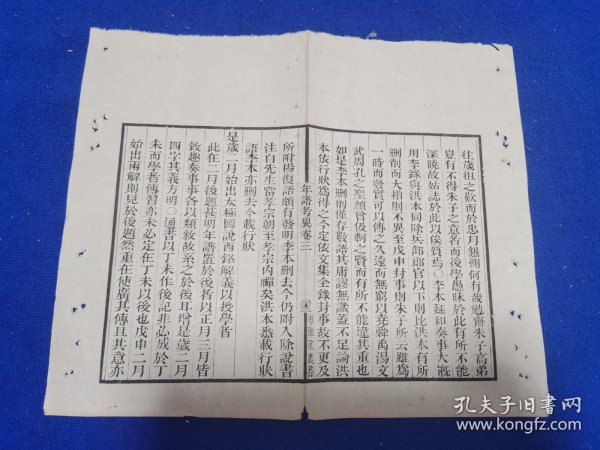 往歲徂之歎而於忠月懇惻何有哉勉齋朱子高弟
豈有不得朱子之意者而後學愚昧於此有所不能
深曉故姑誌於此以俟質焉○李本延和奏事大槪
用李錄與洪本同除兵部郎官以下則比洪本有所
刪削而大槪則不異至戊申封事則朱子所云雖爲
一時而發實可以傳之久遠而無窮以堯舜禹湯文
武周孔之聖顏曾伋軻之賢而有所不能違其重也
如是李本刪削僅存數語其庸謬無識蓋不足論洪
本依行狀爲得之今定依文集全錄封事故不更及
年譜考異卷三
所附楊復語頗有發明李本刪去今仍附入除說書
注自先生當孝宗朝至孝宗內禪矣洪本悉載行狀
語李本亦刪去今載行狀
是歲二月始出太極圖說西銘解義以授學者
此在二月後題甚明年譜置於後者以正月三月皆
敘趣奏事事各以類敘故系之於後耳增是歲二月
四字其義方明○通書以丁未作後記非必成於丁
未而學者傳習亦未必定在丁未以後也戊申二月
始出兩解則見於後題然重在使廣其傳且其意亦
孔夫子旧书网
www.kongfz.com